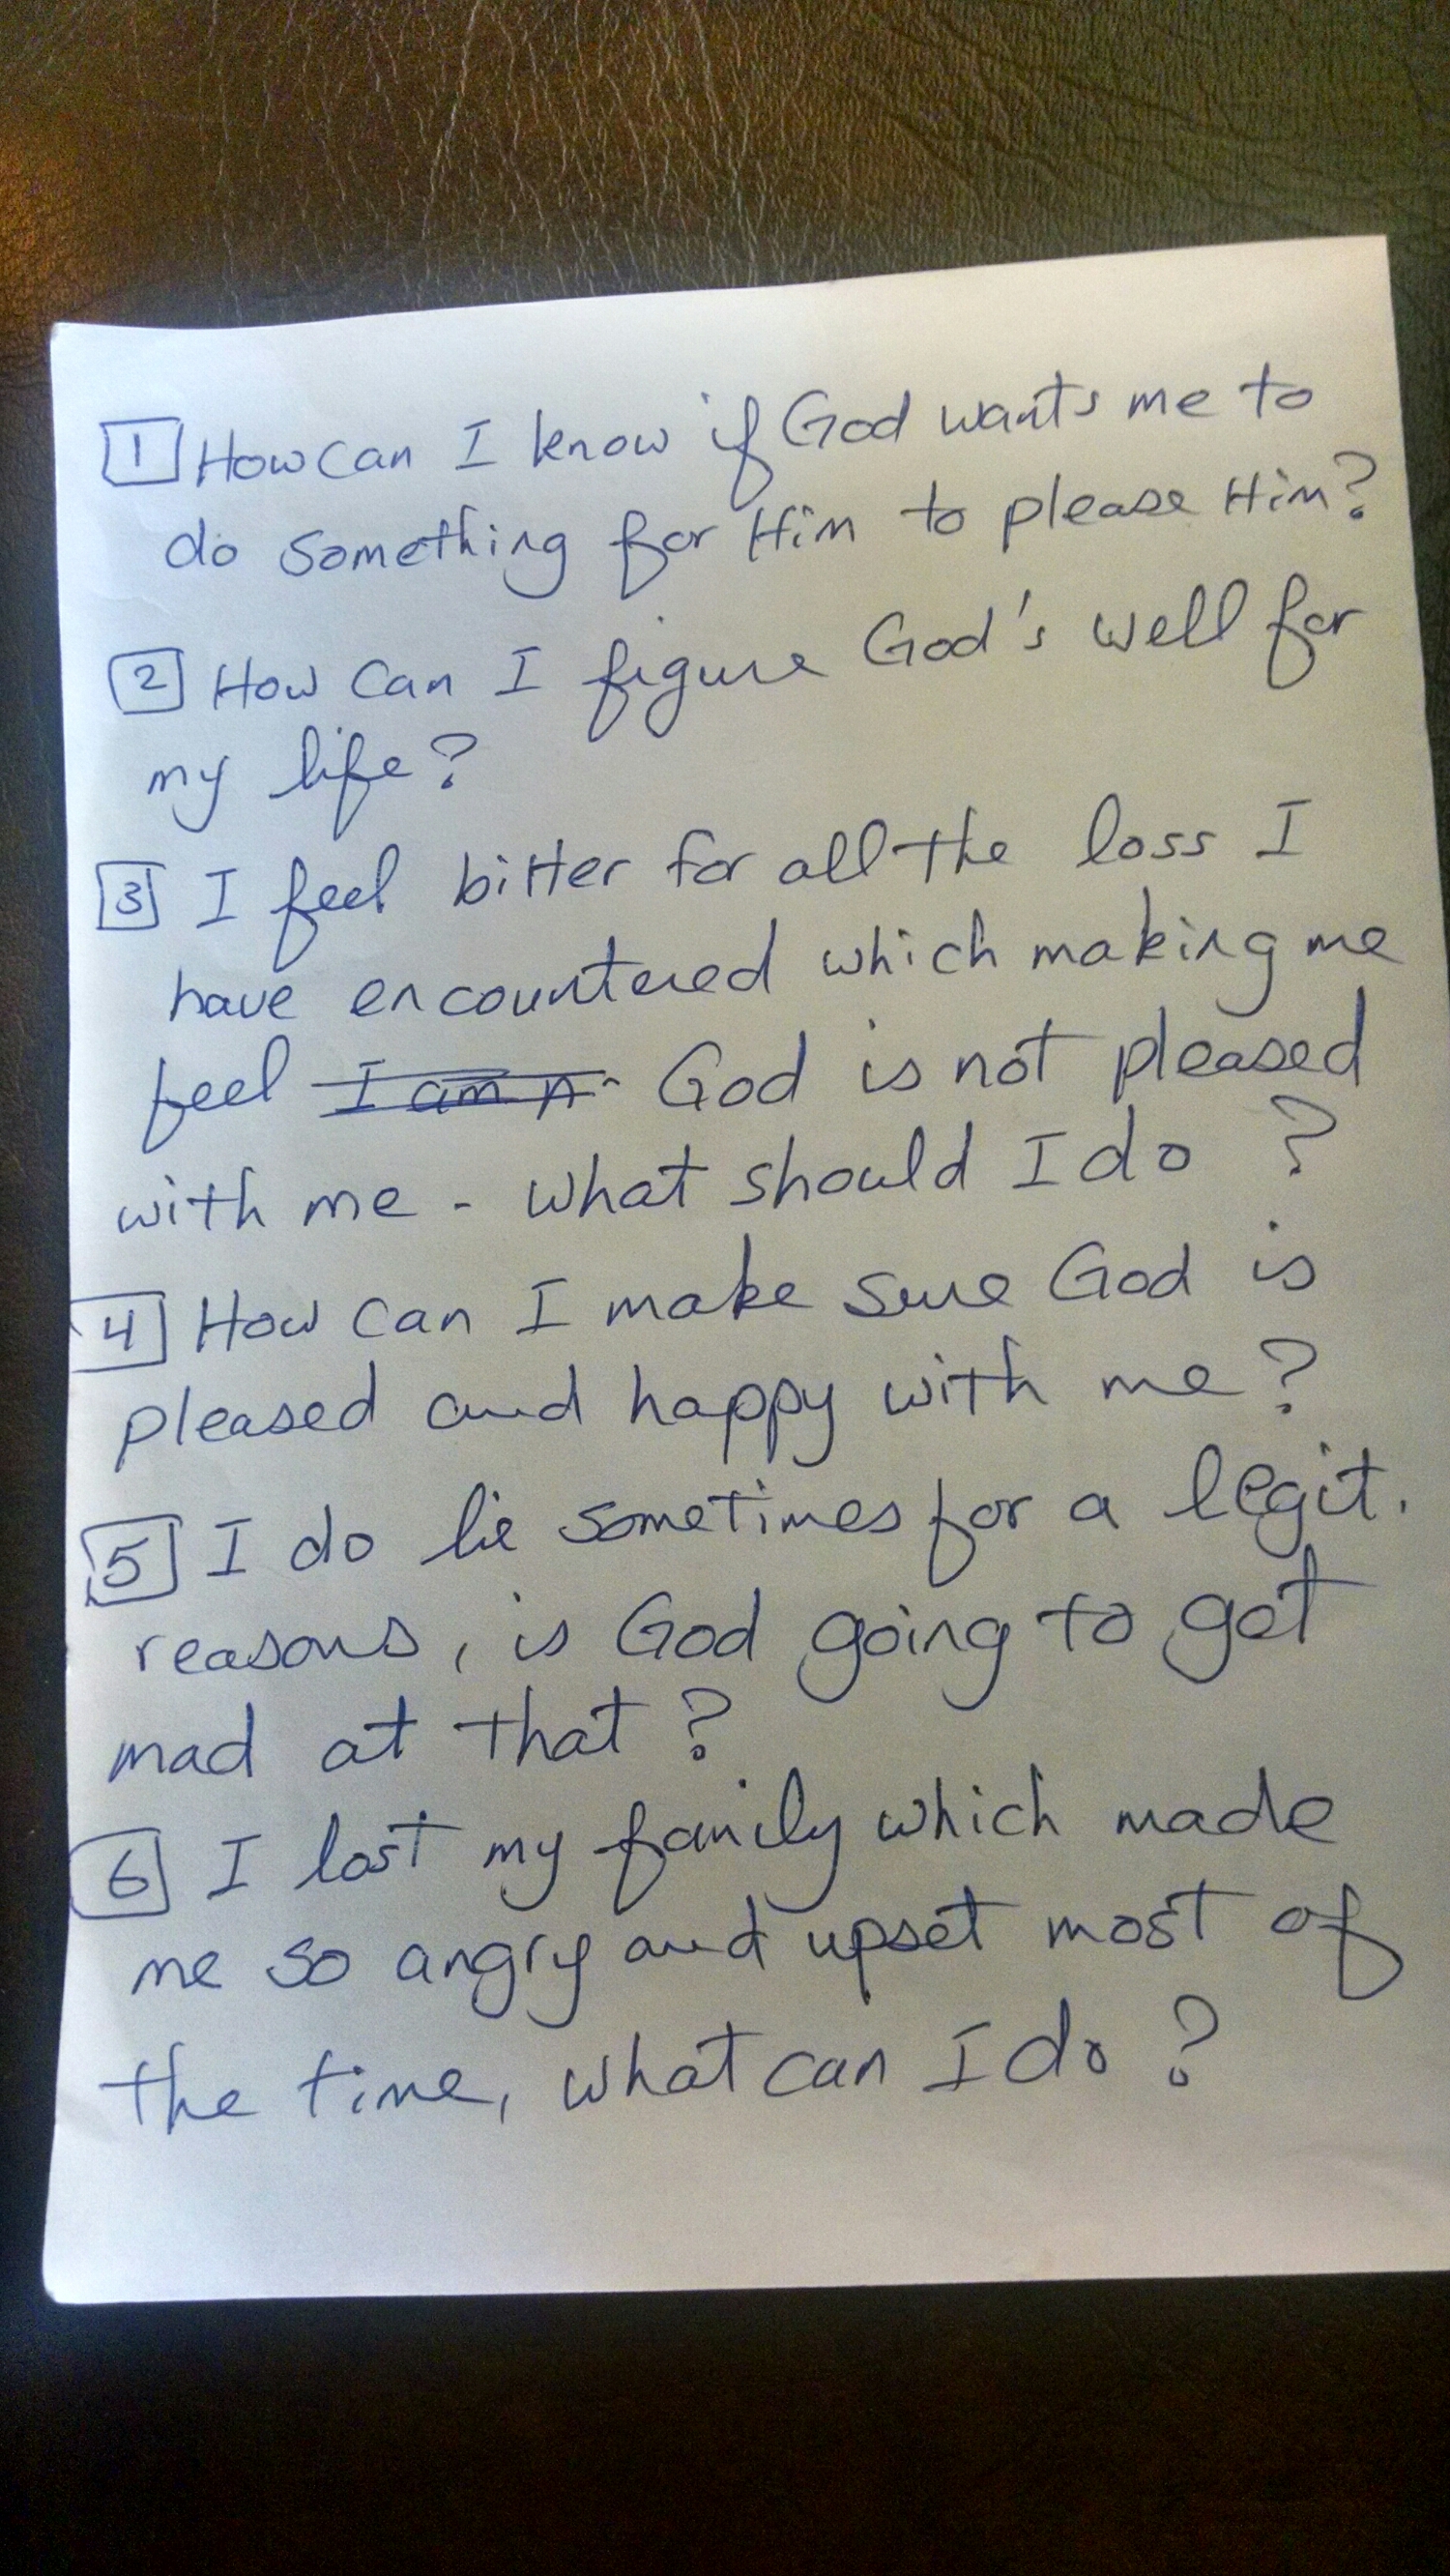 1 How can I know if God wants me to
do something for Him to please Him?
2 How can I figure God's well for
my life?
3 I feel bitter for all the loss I
have encountered which making me
feel I am n God is not pleased
with me - what should I do ?
4 How can I make sure God is
pleased and happy with me?
5 I do lie sometimes for a legit.
reasons, is God going to get
mad at that?
6 I lost my family which made
me so angry and upset most of
the time, what can I do ?